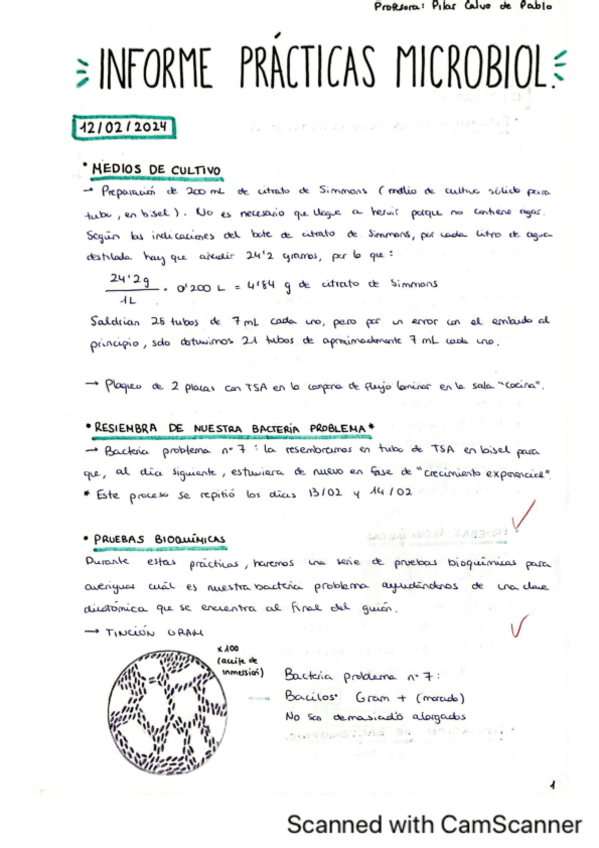 Profesora: Pilar Calvo de Pablo
INFORME PRÁCTICAS MICROBIOL.
12/02/2024
* MEDIOS DE CULTIVO
→ Preparación de 200 mL de citrato de Simmons (medio de cultivo sólido para
tubo, en bisel). No es necesario que llegue a hervir porque no contiene agar.
Según las indicaciones del bote de citrato de Simmons, por cada litro de agua
destilada hay que añadir 24'2 gramos, por lo que:
24'2 g
1L
· 0'200 L = 4'84 g de citrato de Simmons
Saldrían 28 tubos de 7 mL cada uno, pero por un error con el embudo al
principio, solo obtuvimos 21 tubos de aproximadamente 7 mL cada uno.
→ Plaqueo de 2 placas con TSA en la campana de flujo laminar en la sala "cocina".
* RESIEMBRA DE NUESTRA BACTERÍA PROBLEMA*
→ Bacteria problema nº 7: la resembramos en tubo de TSA en bisel para
que, al día siguiente, estuviera de nuevo en fase de "crecimiento exponencial".
* Este proceso se repitió los días 13/02 y 14/02
* PRUEBAS BIOQUÍMICAS
Durante estas prácticas, haremos una serie de pruebas bioquímicas para
averiguar cuál es nuestra bacteria problema ayudándonos de una clave
dicotómica que se encuentra al final del guión.
→ TINCIÓN GRAM
x100
(aceite de
inmersión)
Bacteria problema nº 7:
Bacilos Gram + (morado)
No son demasiado alargados
1
Scanned with CamScanner